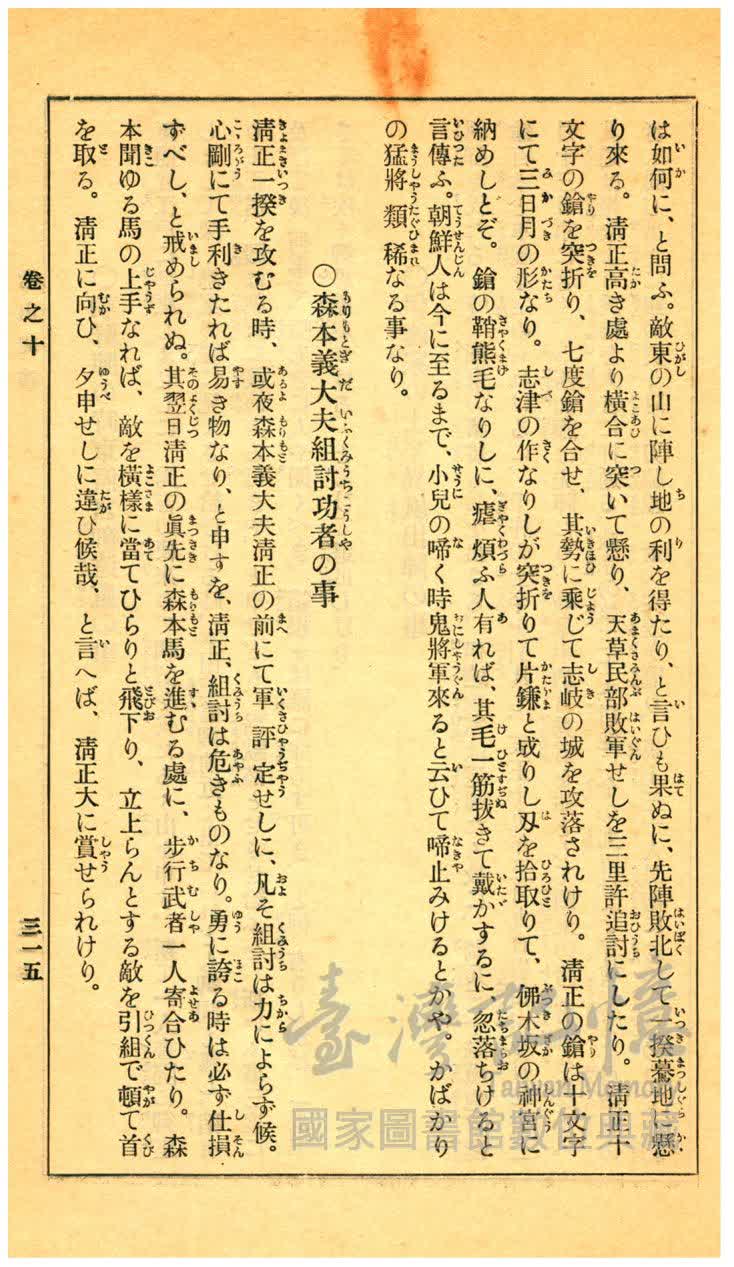 は如何に、と問ふ。敵東の山に陣し地の利を得たり、と言ひも果ぬに、先陣敗北して一揆驀地に懸
り來る。淸正高き處より橫合に突いて懸り、天草民部敗軍せしを三里許追討にしたり。淸正十
文字の鎗を突折り、七度鎗を合せ、其勢に乘じて志岐の城を攻落されけり。淸正の鎗は十文字
にて三日月の形なり。志津の作なりしが突折りて片鎌と成りし刄を拾取りて、佛木坂の神宮に
納めしとぞ。鎗の鞘熊毛なりしに、瘧煩ふ人有れば、其毛一筋拔きて戴かするに、忽落ちけると
言傳ふ。朝鮮人は今に至るまで、小兒の啼く時鬼將軍來ると云ひて啼止みけるとかや。かばかり
の猛將類稀なる事なり。
○森本義大夫組討功者の事
淸正一揆を攻むる時、或夜森本義大夫淸正の前にて軍評定せしに、凡そ組討は力によらず候。
心剛にて手利きたれば易き物なり、と申すを、淸正、組討は危きものなり。勇に誇る時は必ず仕損
ずべし、と戒められぬ。其翌日淸正の眞先に森本馬を進むる處に、步行武者一人寄合ひたり。森
本聞ゆる馬の上手なれば、敵を橫樣に當てひらりと飛下り、立上らんとする敵を引組で頓て首
を取る。淸正に向ひ、夕申せしに違ひ候哉、と言へば、淸正大に賞せられけり。
卷之十
三一五
臺灣記憶
Taiwan Memory
國家圖書館數位典藏